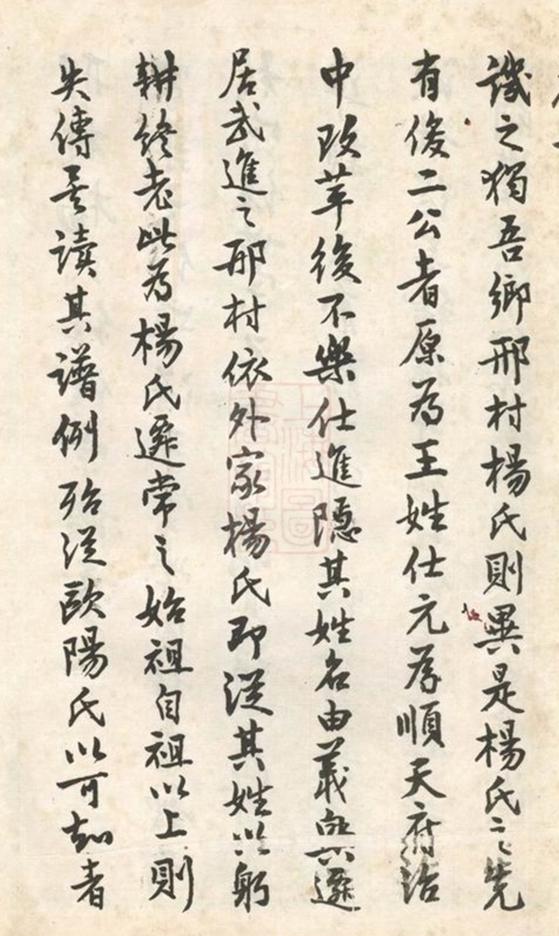 譏之獨吾鄉邢村楊氏則異是楊氏之先
有俊二公者原為王姓仕元為順天府治
中改革後不樂仕進隱其姓名由義興遷
居武進之邢村依外家楊氏即從其姓以躬
耕終老此為楊氏遷常之始祖自祖以上則
失傳吾讀其譜例殆從歐陽氏以可知者